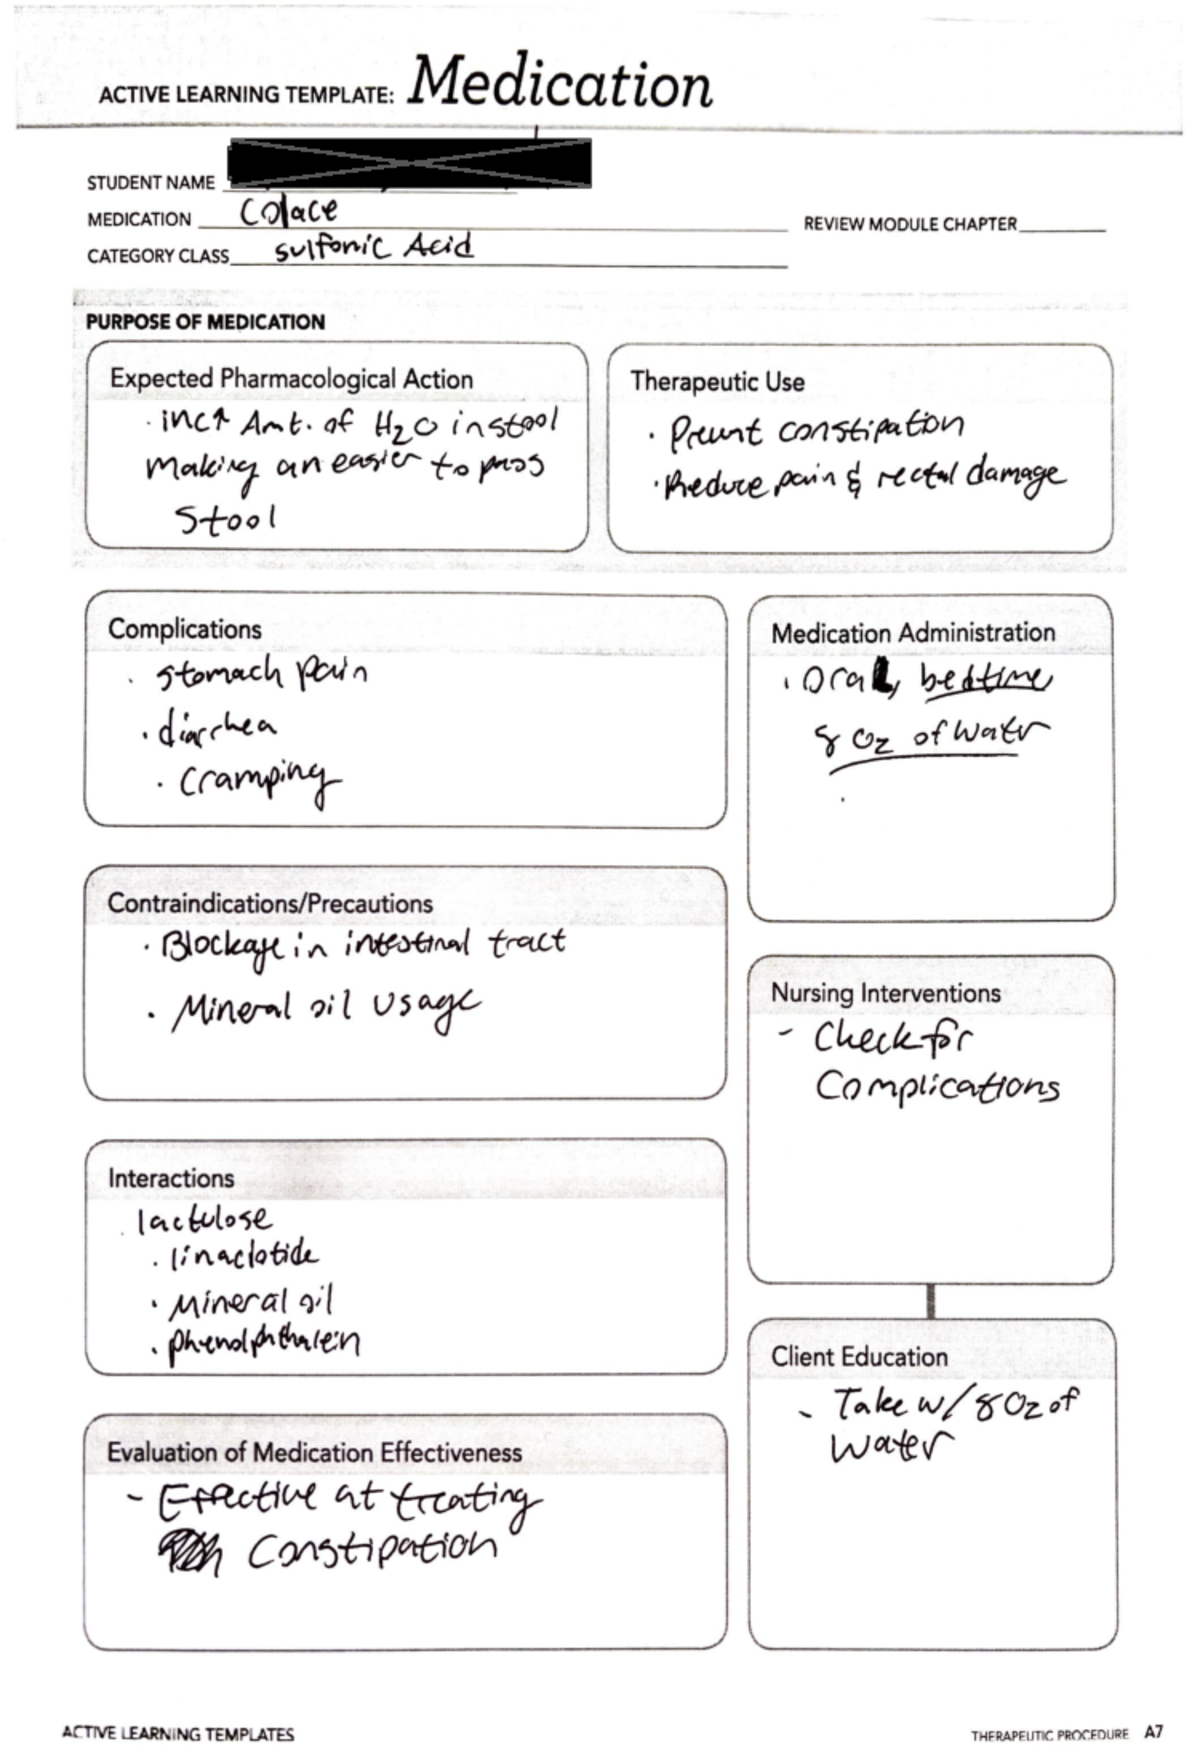 ACTIVE LEARNING TEMPLATE: Medication
STUDENT NAME
MEDICATION Colace
REVIEW MODULE CHAPTER
CATEGORY CLASS sulfonic Acid
PURPOSE OF MEDICATION
Expected Pharmacological Action
· inc↑ Amt. of H2O in stool
making an easier to pass
stool
Therapeutic Use
· Prevent constipation
· Reduce pain & rectal damage
Complications
· stomach pain
· diarrhea
· Cramping
Medication Administration
· Oral, bedtime
8 Oz of water
Contraindications/Precautions
· Blockage in intestinal tract
· Mineral oil usage
Nursing Interventions
- Check for
Complications
Interactions
· lactulose
· linaclotide
· Mineral oil
· phenolphthalein
Client Education
- Take w/ 8 Oz of
water
Evaluation of Medication Effectiveness
- Effective at treating
Constipation
ACTIVE LEARNING TEMPLATES
THERAPEUTIC PROCEDURE A7